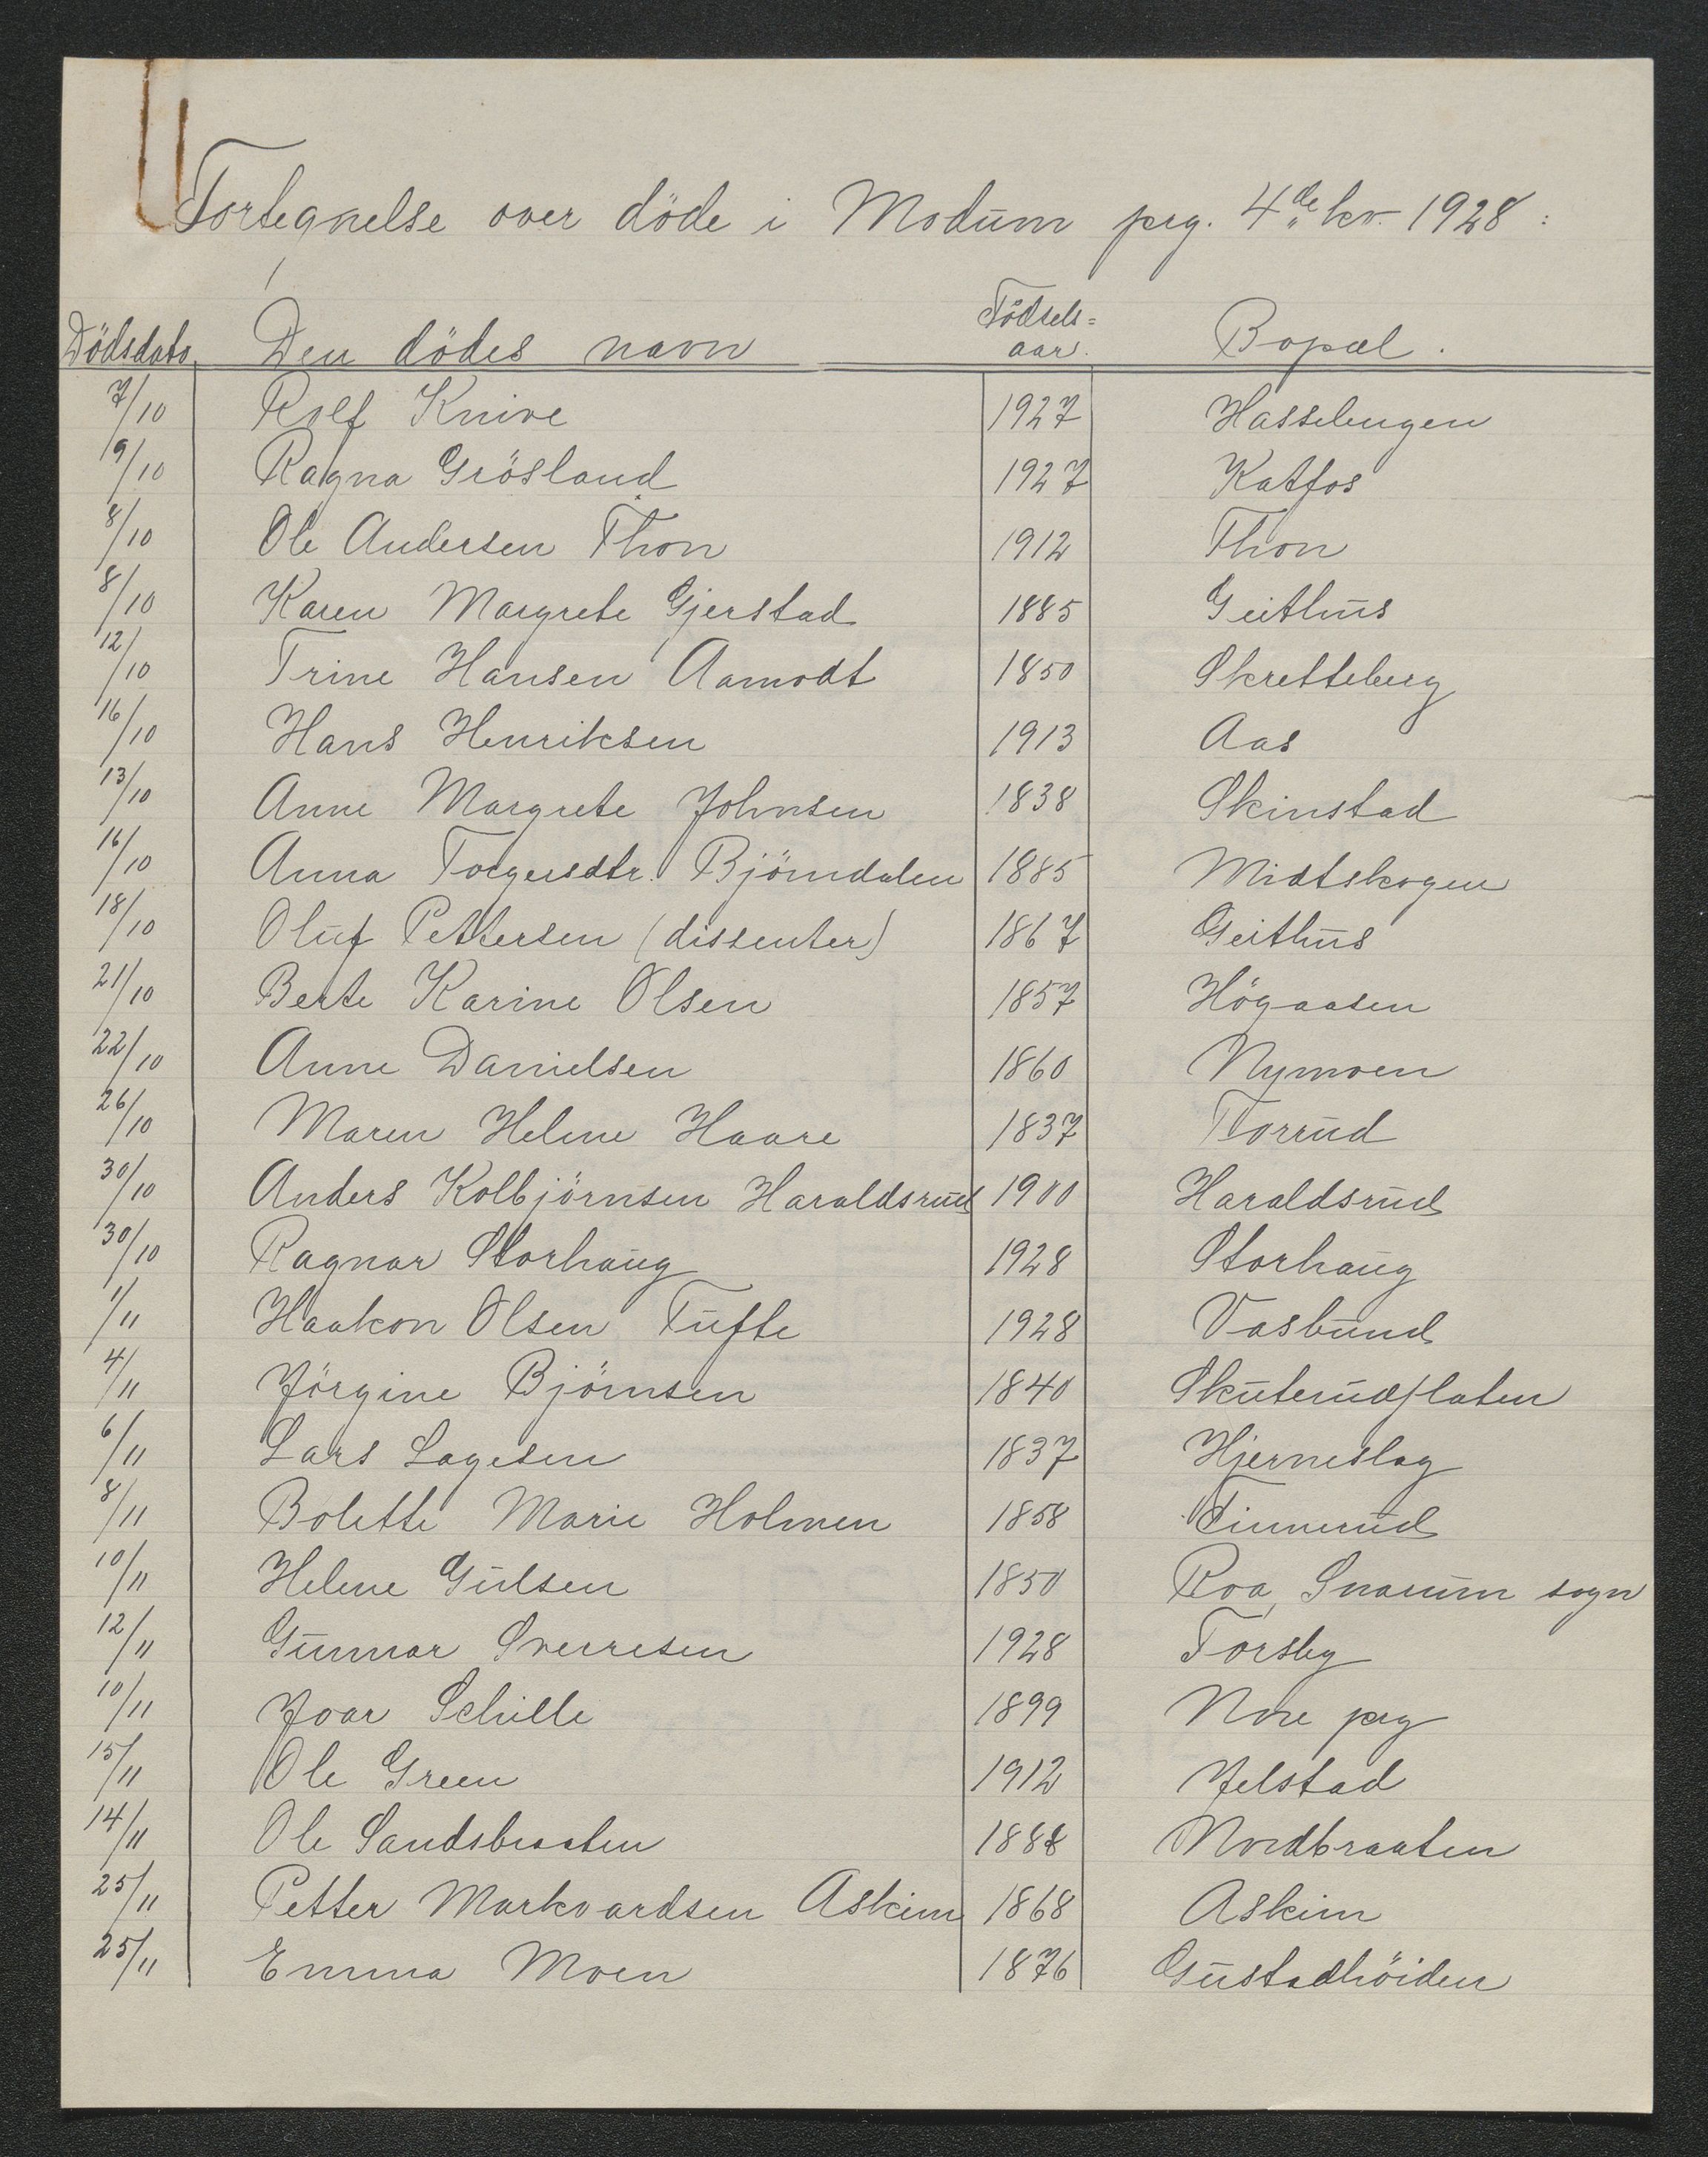 Fortegnelse over döde i Modum prg. 4de kv. 1928:
Dödsdato Den dödes navn Födsels=aar. Bopæl.
7/10 Rolf Knive 1927 Hassebugen
9/10 Ragna Grösland 1927 Katfos
8/10 Ole Andersen Thon 1912 Thon
8/10 Karen Margrete Gjerstad 1885 Geithus
12/10 Trine Hansen Aamodt 1850 Skretteberg
16/10 Hans Henriksen 1913 Aas
13/10 Anne Margrete Johnsen 1838 Skinstad
16/10 Anna Torgersdtr. Björndalen 1885 Midtskogen
18/10 Oluf Pettersen (dissenter) 1867 Geithus
21/10 Berte Karine Olsen 1857 Högaasen
22/10 Anne Danielsen 1860 Nymoen
26/10 Maren Helene Haare 1837 Torrud
30/10 Anders Kolbjörnsen Haraldsrud 1900 Haraldsrud
30/10 Ragnar Storhaug 1928 Storhaug
1/11 Haakon Olsen Tufte 1928 Vasbund
4/11 Jörgine Björnsen 1840 Skuterudflaten
6/11 Lars Lagesen 1837 Hjerneslag
8/11 Bolette Marie Holmen 1858 Finnerud
10/11 Helene Gulsen 1850 Roa, Snarum sogn
12/11 Gunnar Sverresen 1928 Forsby
10/11 Joar Schille 1899 Nore prg
15/11 Ole Green 1912 Jelstad
14/11 Ole Sandsbraaten 1888 Nordbraaten
25/11 Petter Markvardsen Askim 1868 Askim
25/11 Emma Moen 1876 Gustadhöiden